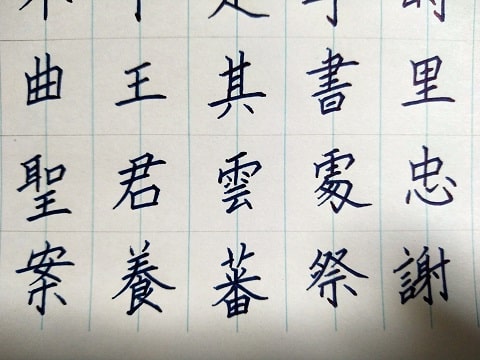 曲 王 其 書 里
聖 君 雲 忠
案 養 蕃 祭 謝